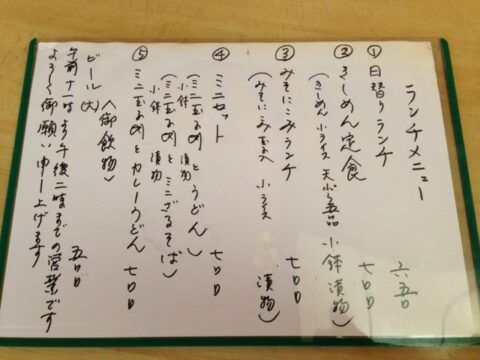 ランチメニュー
① 日替りランチ 六五〇
② きしめん定食 七〇〇
(きしめん 小ライス 天ぷら五品 小鉢 漬物)
③ みそにこみランチ 七〇〇
(みそにこみ 小ライス 漬物)
④ ミニセット 七〇〇
(ミニ玉子めしとうどん)
小鉢 漬物
(ミニ玉子めしとミニざるそば)
小鉢 漬物
⑤ ミニ玉子めしとカレーうどん 七〇〇
〈御飲物〉
ビール(大) 五〇〇
午前十一時より午後二時までの営業です
よろしく御願い申し上げます